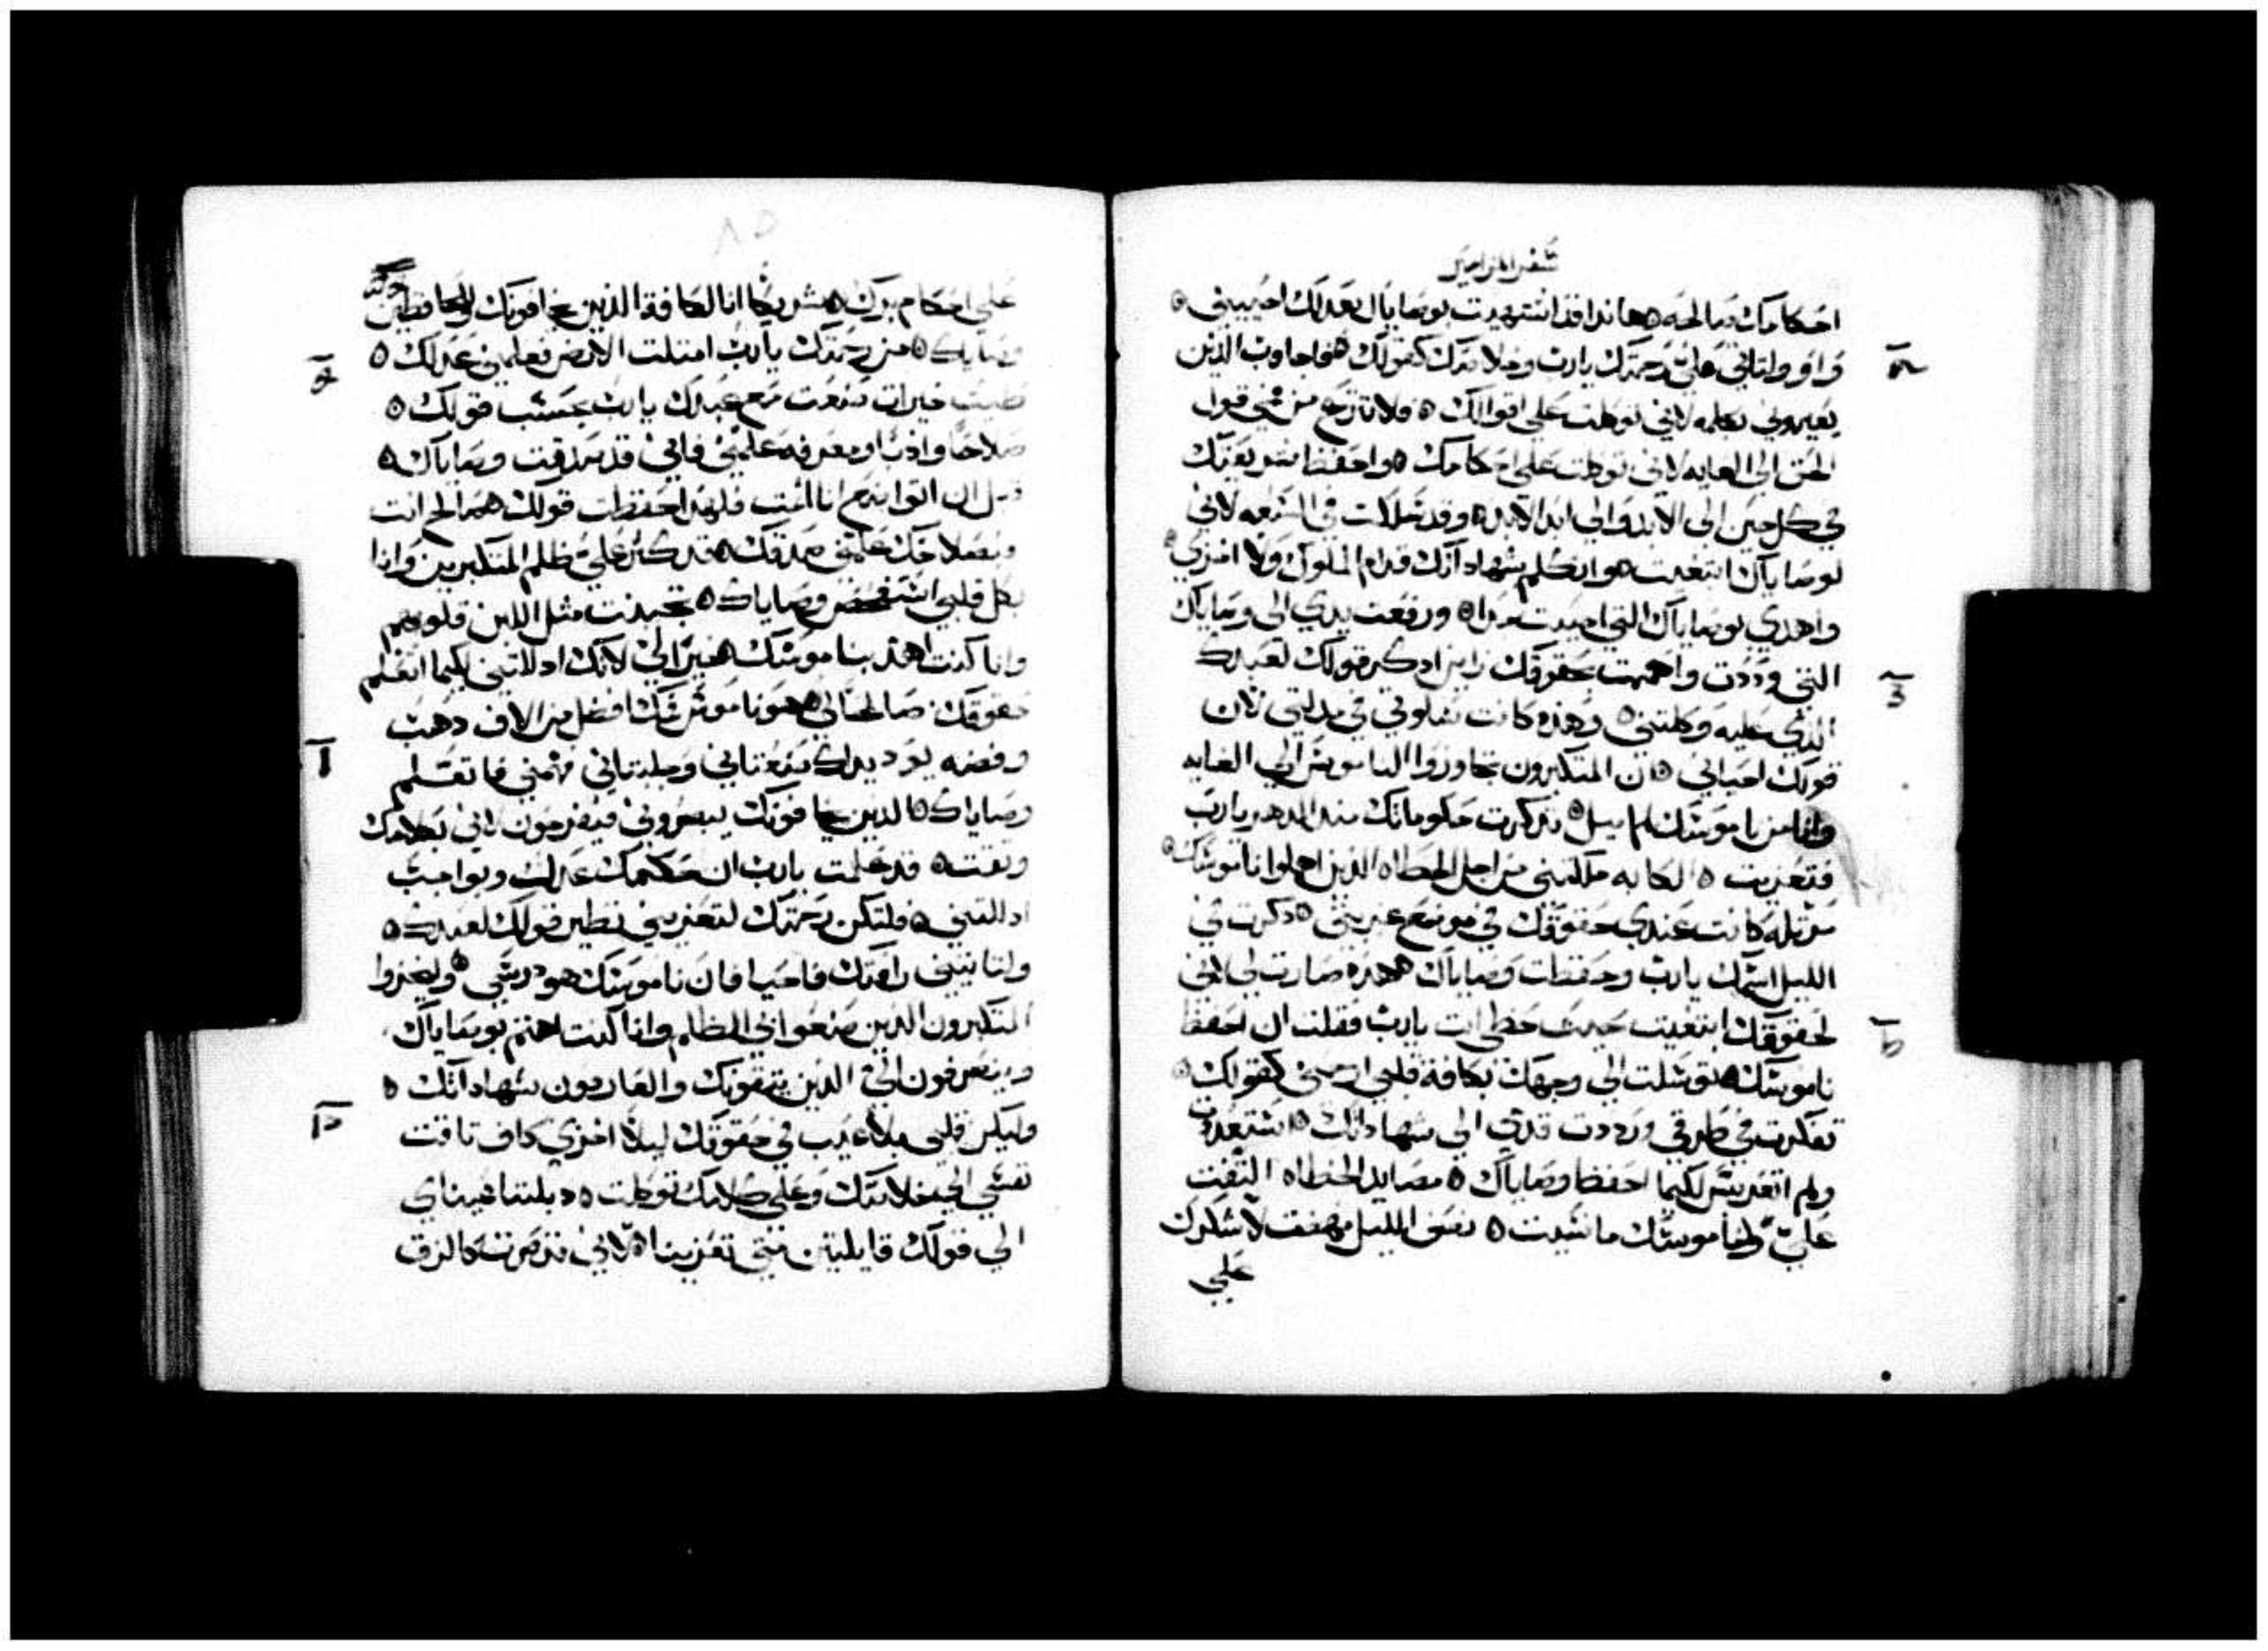 سفر المزامير
احكامك صالحه ه هانذا قد اشتهيت بوصاياك بعدلك احييني ه
واو ولتاتي عليّ رحمتك يارب وخلاصك كقولك ه فاجاوب الذين
يعيروني بكلمه لاني توكلت على اقوالك ه فلا تنزع من فمي قول
الحق الى الغايه لاني توكلت على احكامك ه واحفظ شريعتك
في كل حين الى الابد والي ابد الابد ه وقد سلكت في السعه لاني
لوصاياك ابتغيت ه واتكلم بشهاداتك قدام الملوك ولا اخزي ه
واهدي بوصاياك التي احببت جدا ه ورفعت يدي الى وصاياك
التي وددت واهممت بحقوقك زاين اذكر قولك لعبدك
الذي عليه وكلتني ه وهذه كانت تسلوتي في مذلتي لان
قولك احياني ه ان المتكبرون تجاوزوا الناموس الي الغايه
وانا من ناموسك لم اميل ه تذكرت حكوماتك منذ الدهر يارب
فتعزيت ه الكابه ملكتني من اجل الخطاه الذين اهملوا ناموسك ه
مرتله كانت عندي حقوقك في موضع غربتي ه ذكرت في
الليل اسمك يارب وحفظت وصاياك ه هذه صارت لي لانني
لحقوقك ابتغيت حيث حظي انت يارب فقلت ان احفظ
ناموسك ه توسلت الي وجهك بكافة قلبي ارحمني كقولك ه
تفكرت في طرقي ورددت قدمي الي شهاداتك ه استعددت
ولم اتعربس لكيما احفظ وصاياك ه مصايد الخطاه التفت
عليّ ولناموسك ما نسيت ه نصف الليل نهضت لاشكرك
على
على احكام برك ه شريكا انا لكافة الذين يخافونك ولحافظين
وصاياك ه من رحمتك يارب امتلت الارض فعلمني عدلك ه
طيث خيرات صنعت مع عبدك يارب بحسب قولك ه
صلاحا وادبا ومعرفه علمني فاني قد صدقت وصاياك ه
قبل ان اتواضع انا اثمت فلهذا حفظت قولك ه صالح انت
وبصلاحك علمني صدقك ه قد كثر عليّ ظلم المتكبرين وانا
بكل قلبي استفحص وصاياك ه تجبنت مثل اللبن قلوبهم
وانا كنت اهذ بناموسك ه خيرا لي لانك اذللتني لكيما اتعلم
حقوقك صالحا لي ه هو ناموس فمك افضل من الاف ذهب
وفضه يوذ يداك صنعتاني وجبلتاني فهمني فاتعلم
وصاياك ه الذين يخافونك يبصروني فيفرحون لاني بكلامك
وثقت ه قد علمت يارب ان حكمك عدل وبواجب
اذللتني ه فلتكن رحمتك لتعزيني نظير قولك لعبدك ه
ولتاتيني رافتك فاحيا فان ناموسك هو درسي ه وليخزوا
المتكبرون الذين صنعوا بي الظلم وانا كنت اهتم بوصاياك
وينصرفون اليّ الذين يتقونك والعارفون شهاداتك ه
وليكن قلبي بلا عيب في حقوقك ليلا اخزي كاف تاقت
نفسي الي خلاصك وعلى كلامك توكلت ه ذبلتا عيناي
الي قولك قايلتين متى تعزينا ه لاني قد صرت كالزق